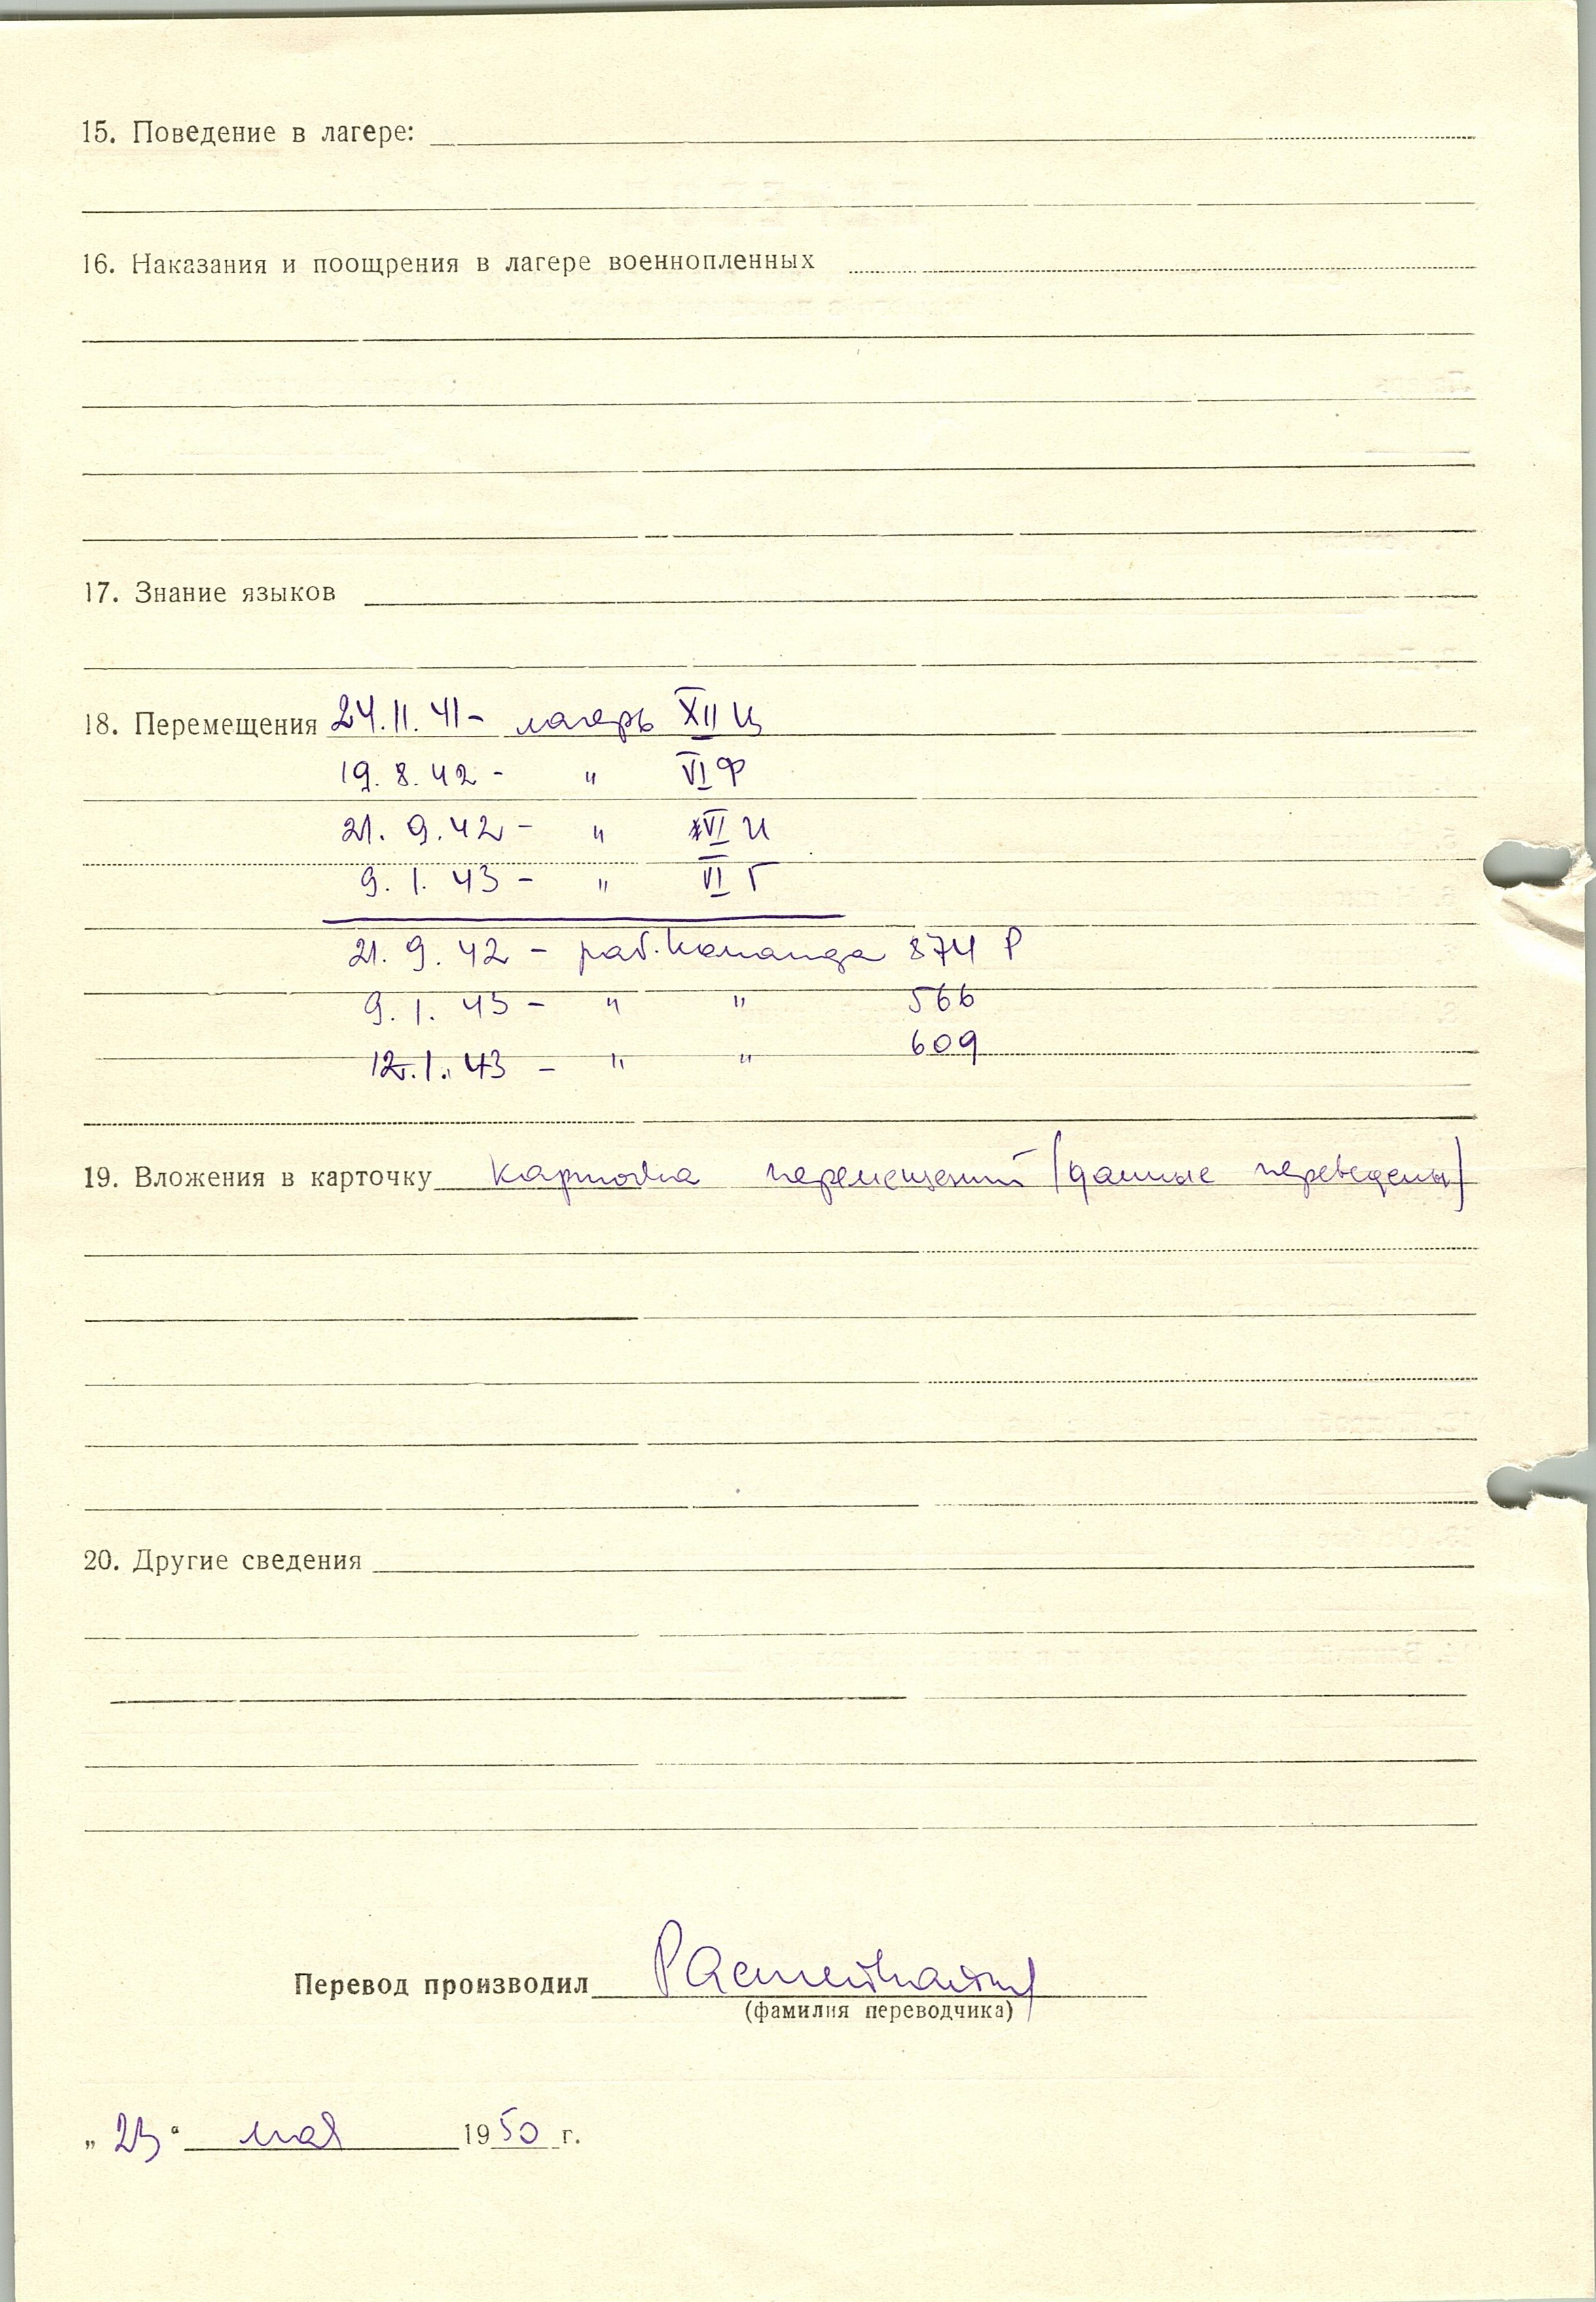 15. Поведение в лагере:
16. Наказания и поощрения в лагере военнопленных
17. Знание языков
18. Перемещения 24.11.41 - лагерь XII Ц
19.8.42 - " VI Ф
21.9.42 - " VI И
9.1.43 - " VI Г
21.9.42 - раб. команда 874 Р
9.1.43 - " " 566
12.1.43 - " " 609
19. Вложения в карточку карточка перемещений (данные переведены)
20. Другие сведения
Перевод производил
(фамилия переводчика)
„23“ мая 1950 г.